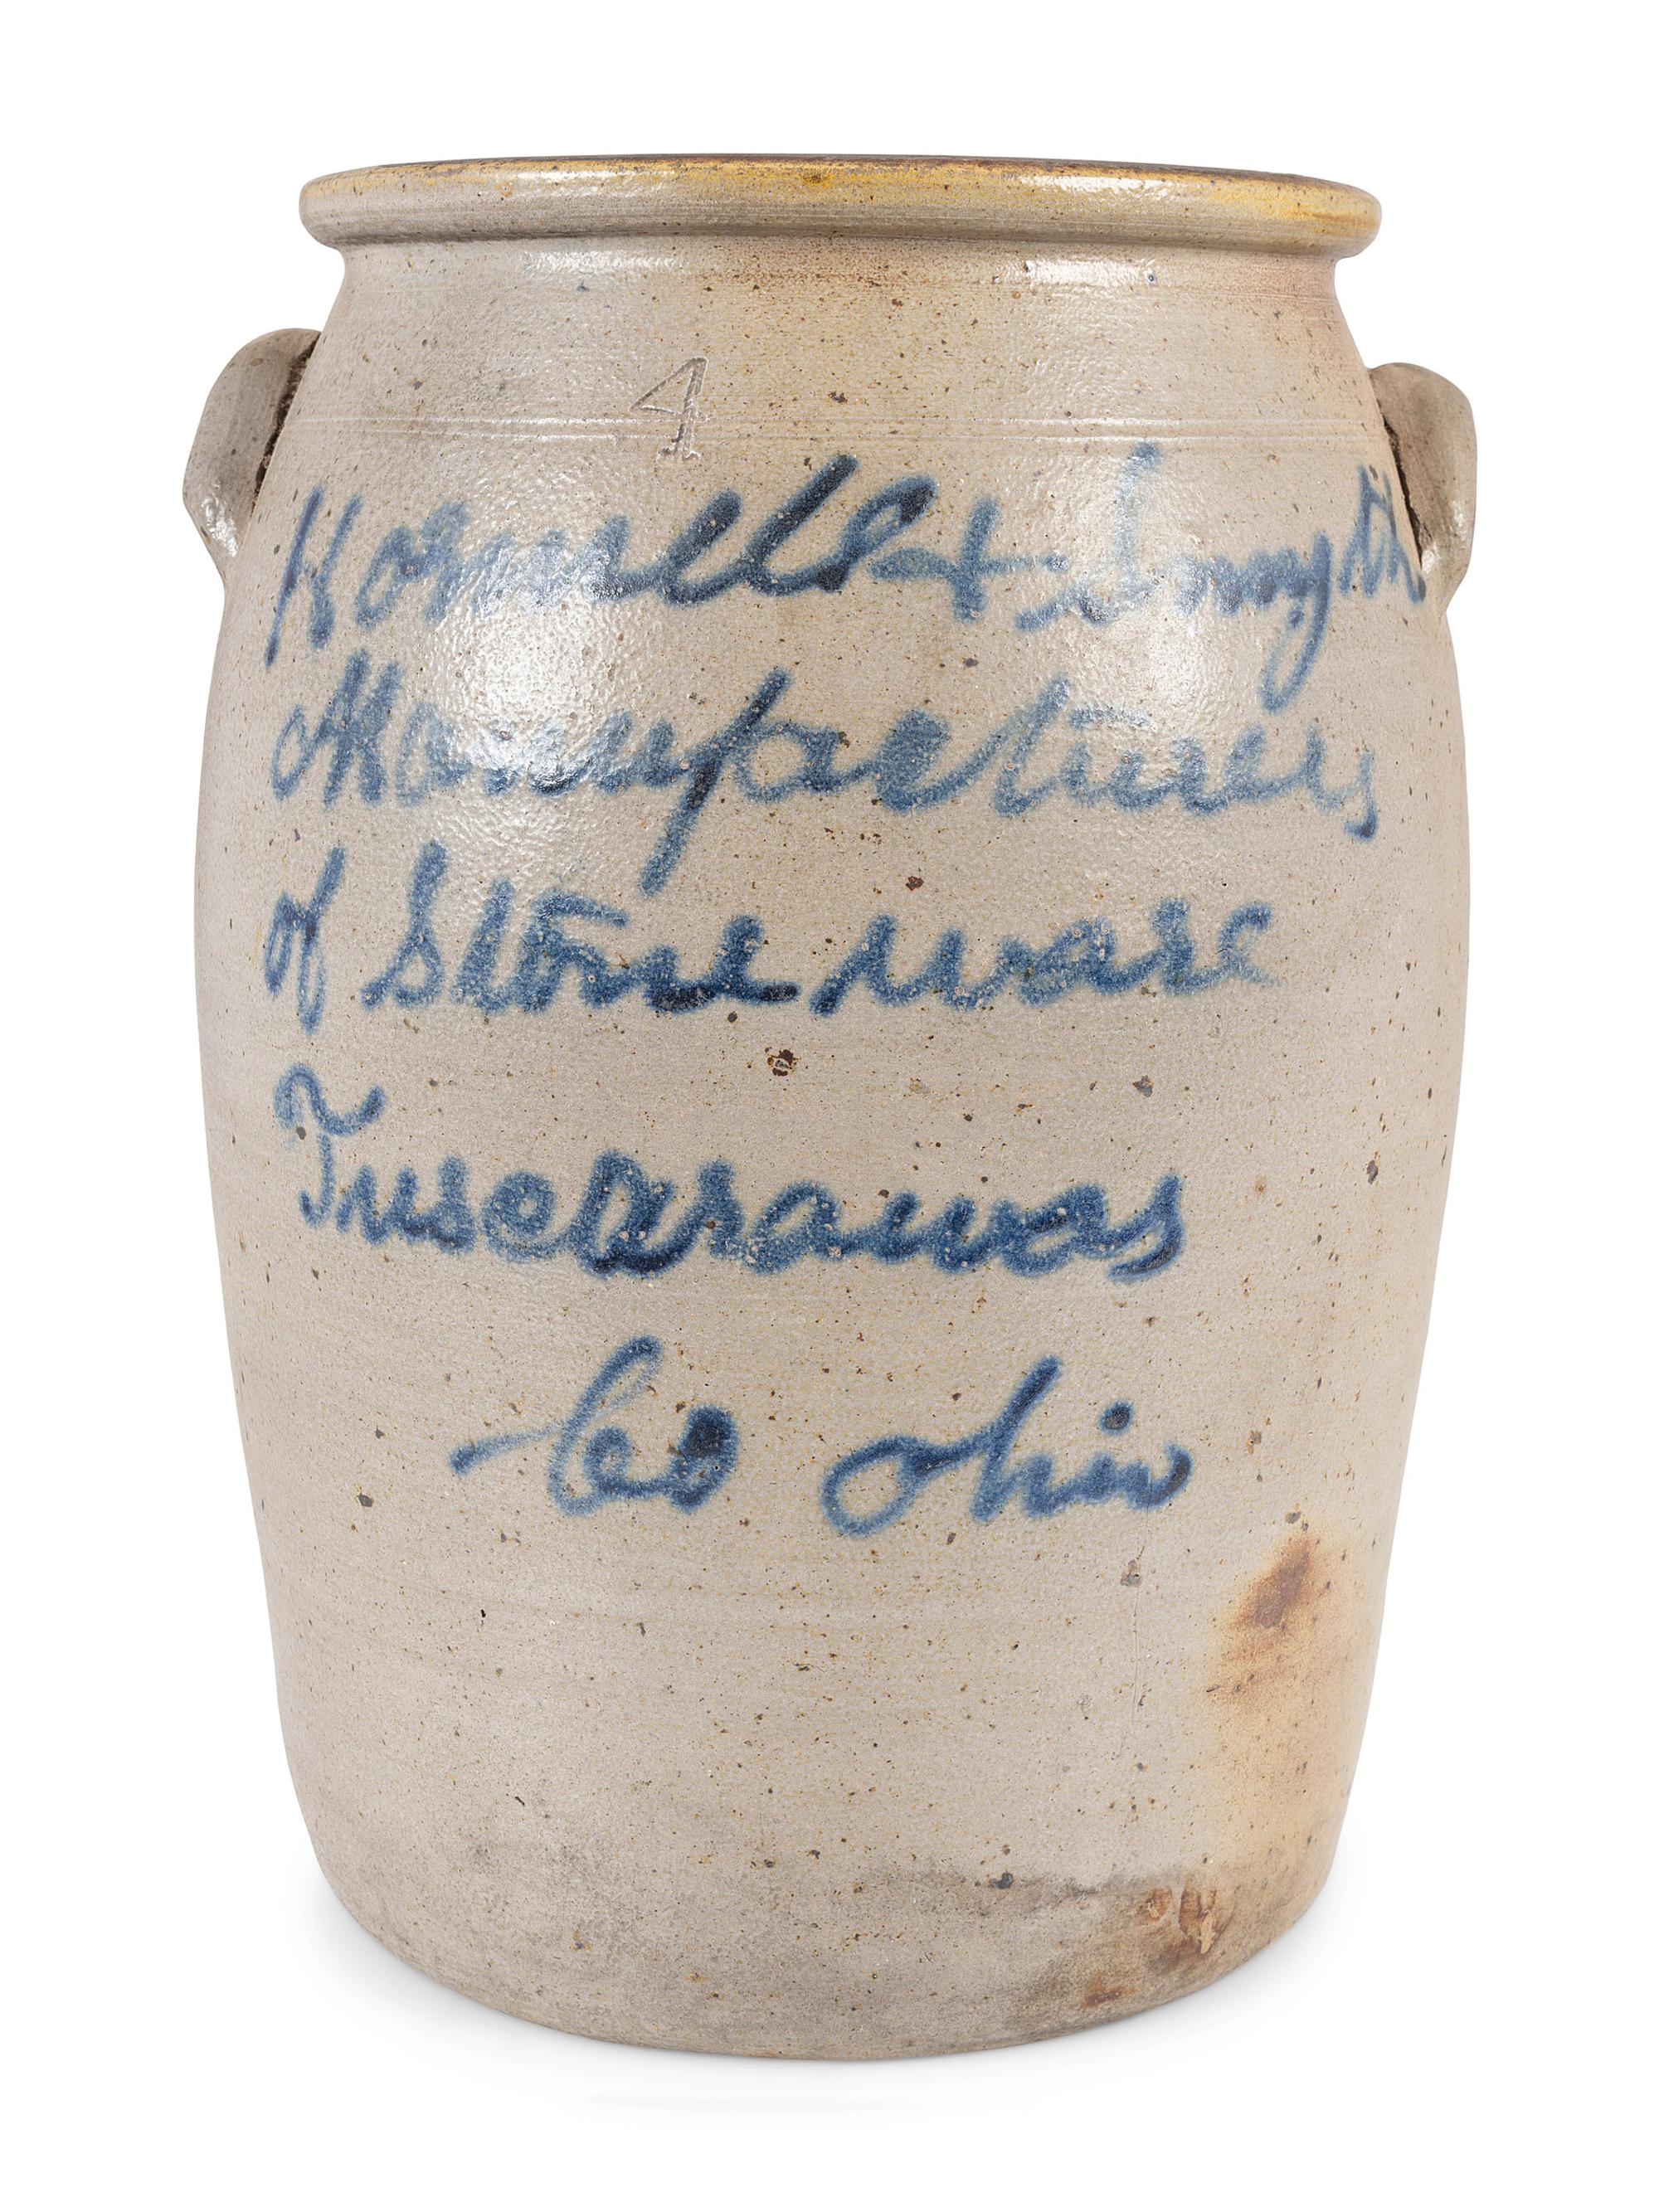 4
Hornell & Smyth
Manufacturers
of Stone ware
Tuscarawas
Co Ohio